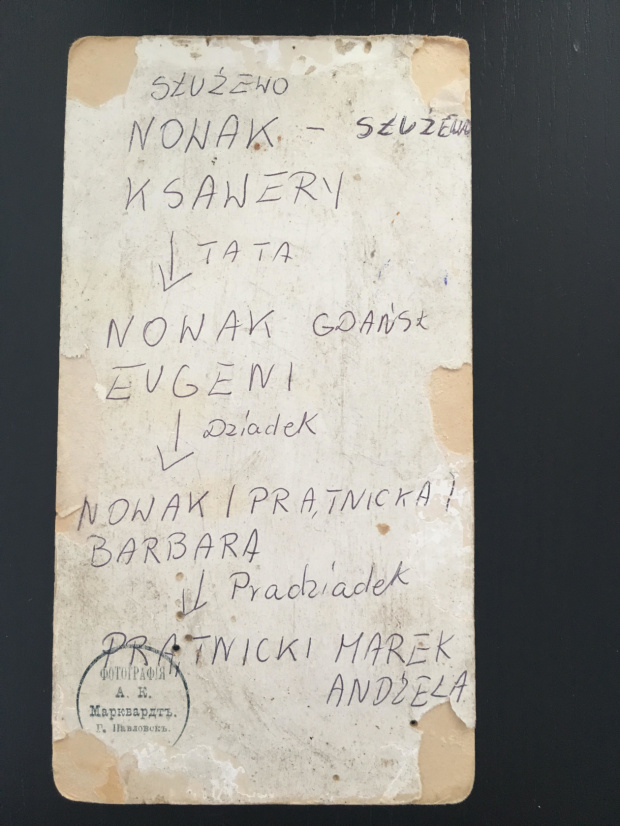 SŁUŻEWO
NOWAK – SŁUŻEWO
KSAWERY
TATA
NOWAK GDAŃSK
EUGENI
Dziadek
NOWAK / PRĄTNICKA /
BARBARA
Pradziadek
PRĄTNICKI MAREK
ANDŻELA
ФОТОГРАФІЯ
А. К.
Марквардтъ.
Г. Павловскъ.